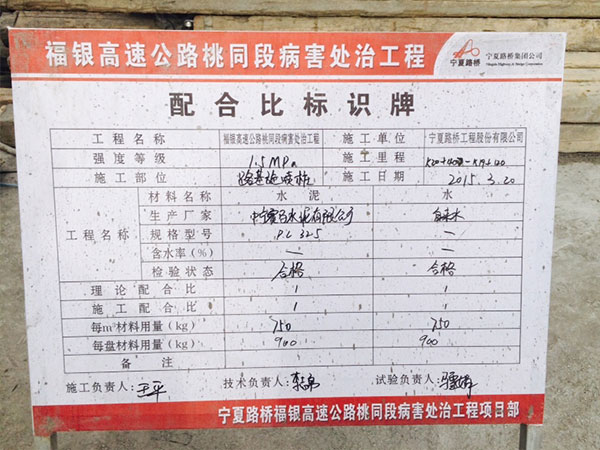 福银高速公路桃同段病害处治工程
宁夏路桥 宁夏路桥集团公司
Ningxia Highway & Bridge Corporation
配合比标识牌
工程名称 福银高速公路桃同段病害处治工程 施工单位 宁夏路桥工程股份有限公司
强度等级 1.5MPa 施工里程
施工部位 路基 施工日期 2015.3.20
工程名称
材料名称 水泥 水
生产厂家 水泥有限公司 自来水
规格型号 P.C 32.5 —
含水率(%) — —
检验状态 合格 合格
理论配合比 1 1
施工配合比 1 1
每m³材料用量(kg) 750 750
每盘材料用量(kg) 900 900
备注
施工负责人:王平 技术负责人: 试验负责人:
宁夏路桥福银高速公路桃同段病害处治工程项目部